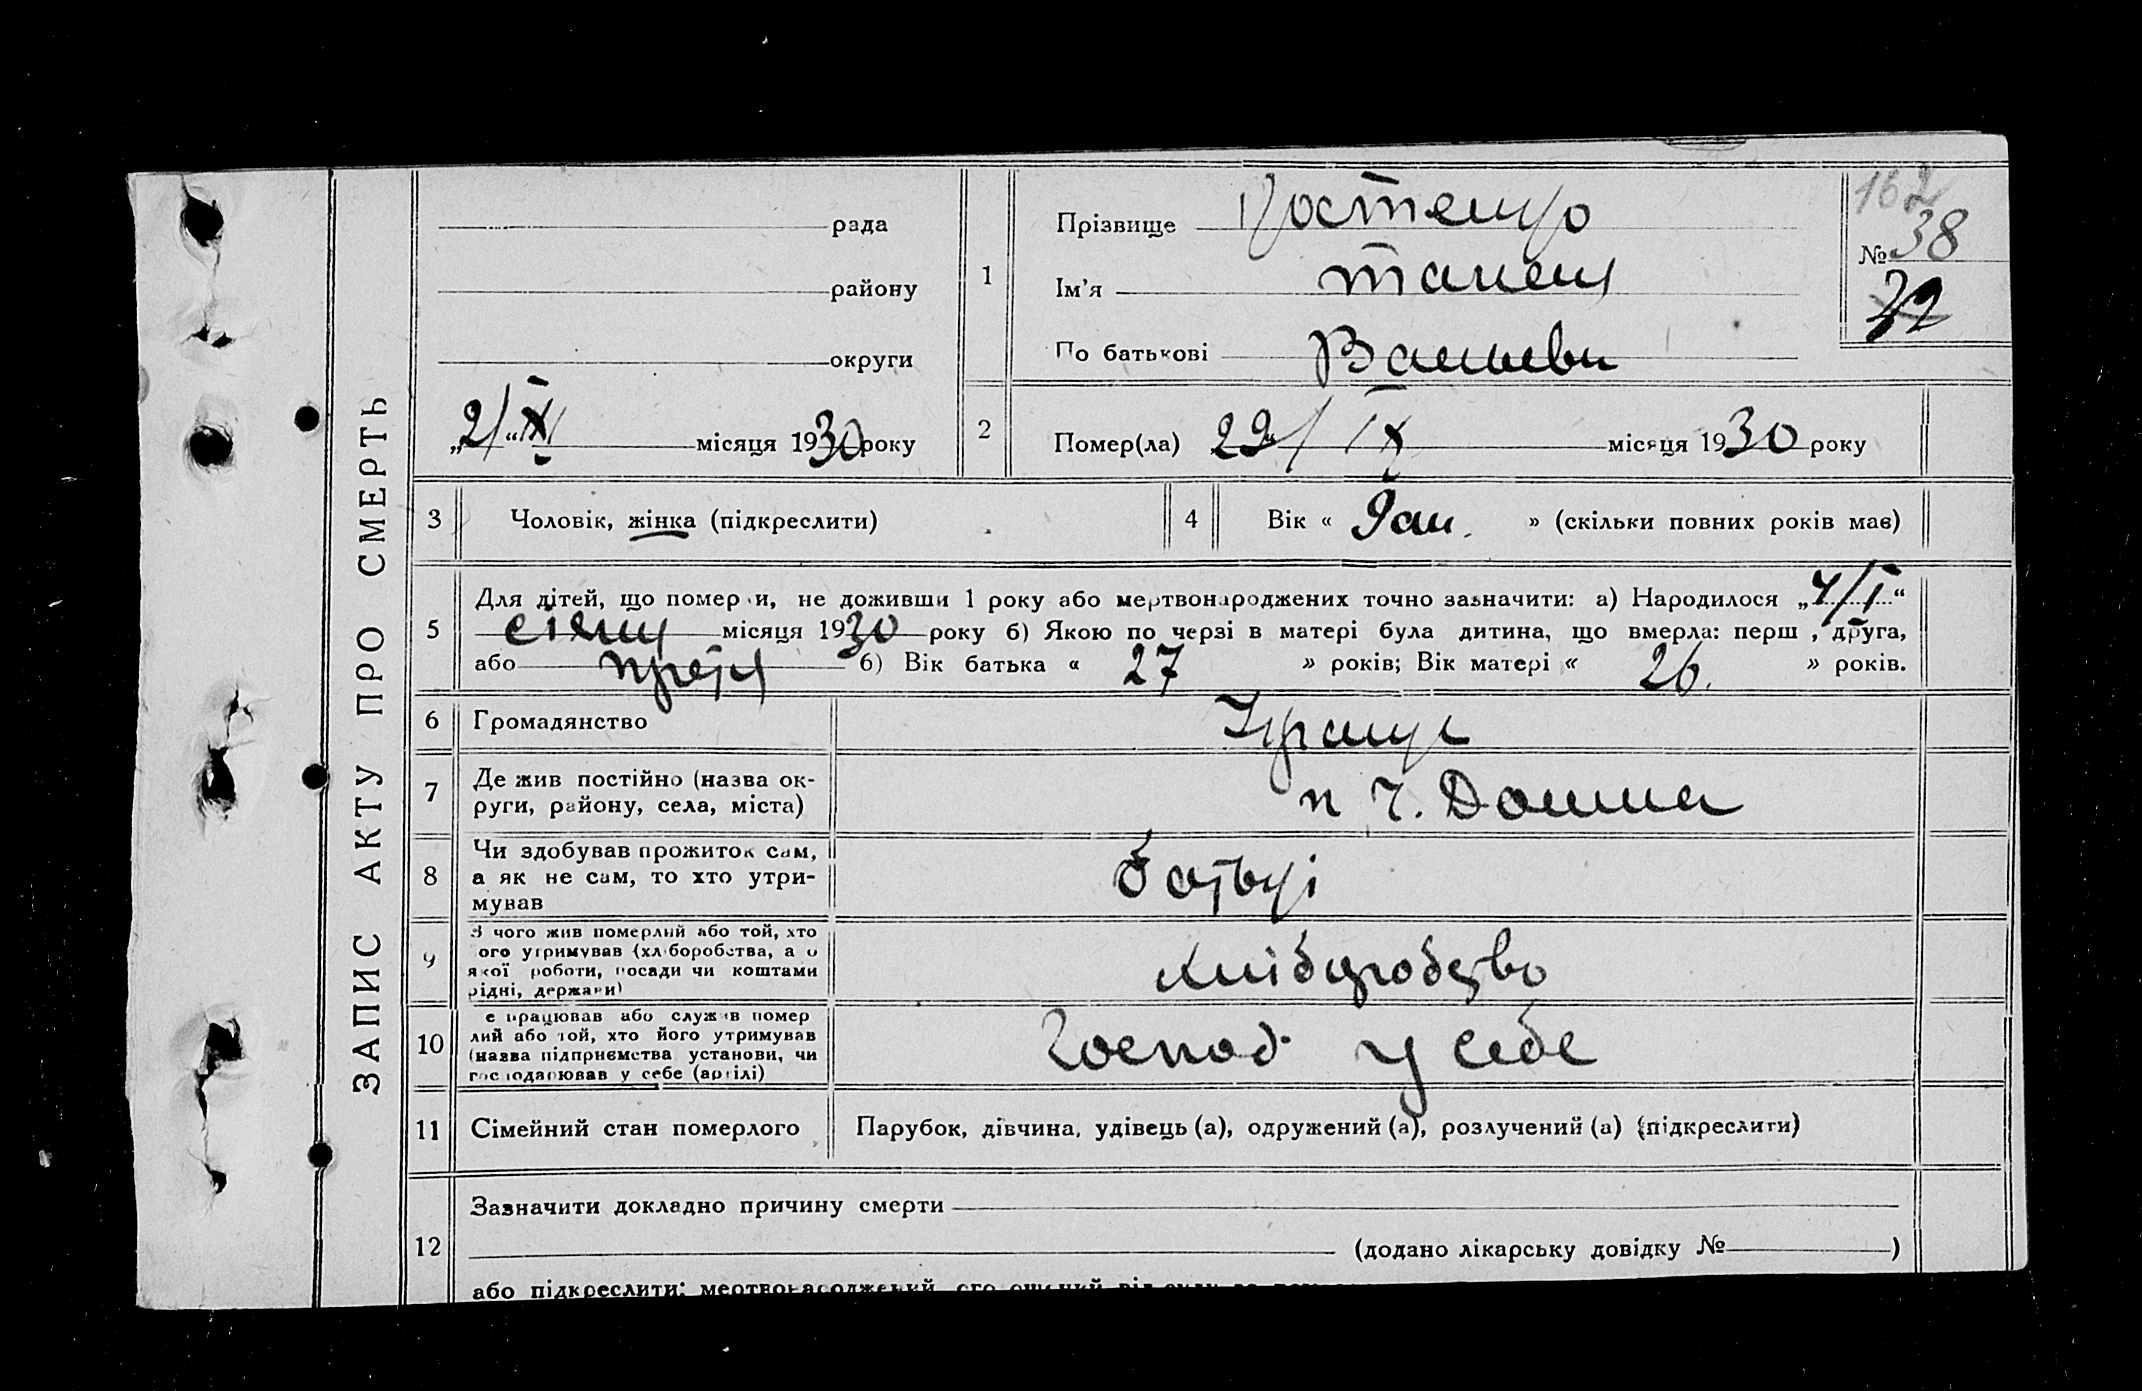 ЗАПИС АКТУ ПРО СМЕРТЬ
рада
району
округи
„2/“ XI місяця 1930 року
1
Прізвище Костенко
Ім'я
По батькові
162
№ 38
32
2
Помер(ла) 29/ IX місяця 1930 року
3
Чоловік, жінка (підкреслити)
4
Вік « 9 » (скільки повних років має)
5
Для дітей, що померли, не доживши 1 року або мертвонароджених точно зазначити: а) Народилося „4/I“
січня місяця 1930 року б) Якою по черзі в матері була дитина, що вмерла: перша, друга,
або третя б) Вік батька « 27 » років; Вік матері « 26. » років.
6
Громадянство
7
Де жив постійно (назва ок-
руги, району, села, міста)
8
Чи здобував прожиток сам,
а як не сам, то хто утри-
мував
батькі
9
З чого жив померлий або той, хто
його утримував (хліборобства, а о
якої роботи, посади чи коштами
рідні, держави)
хліборобство
10
е працював або служив помер
лий або той, хто його утримував
(назва підприємства установи, чи
господарював у себе (артілі)
Господ. у себе
11
Сімейний стан померлого
Парубок, дівчина, удівець (а), одружений (а), розлучений (а) (підкреслити)
12
Зазначити докладно причину смерти
(додано лікарську довідку № )
або підкреслити: мертвонароджений